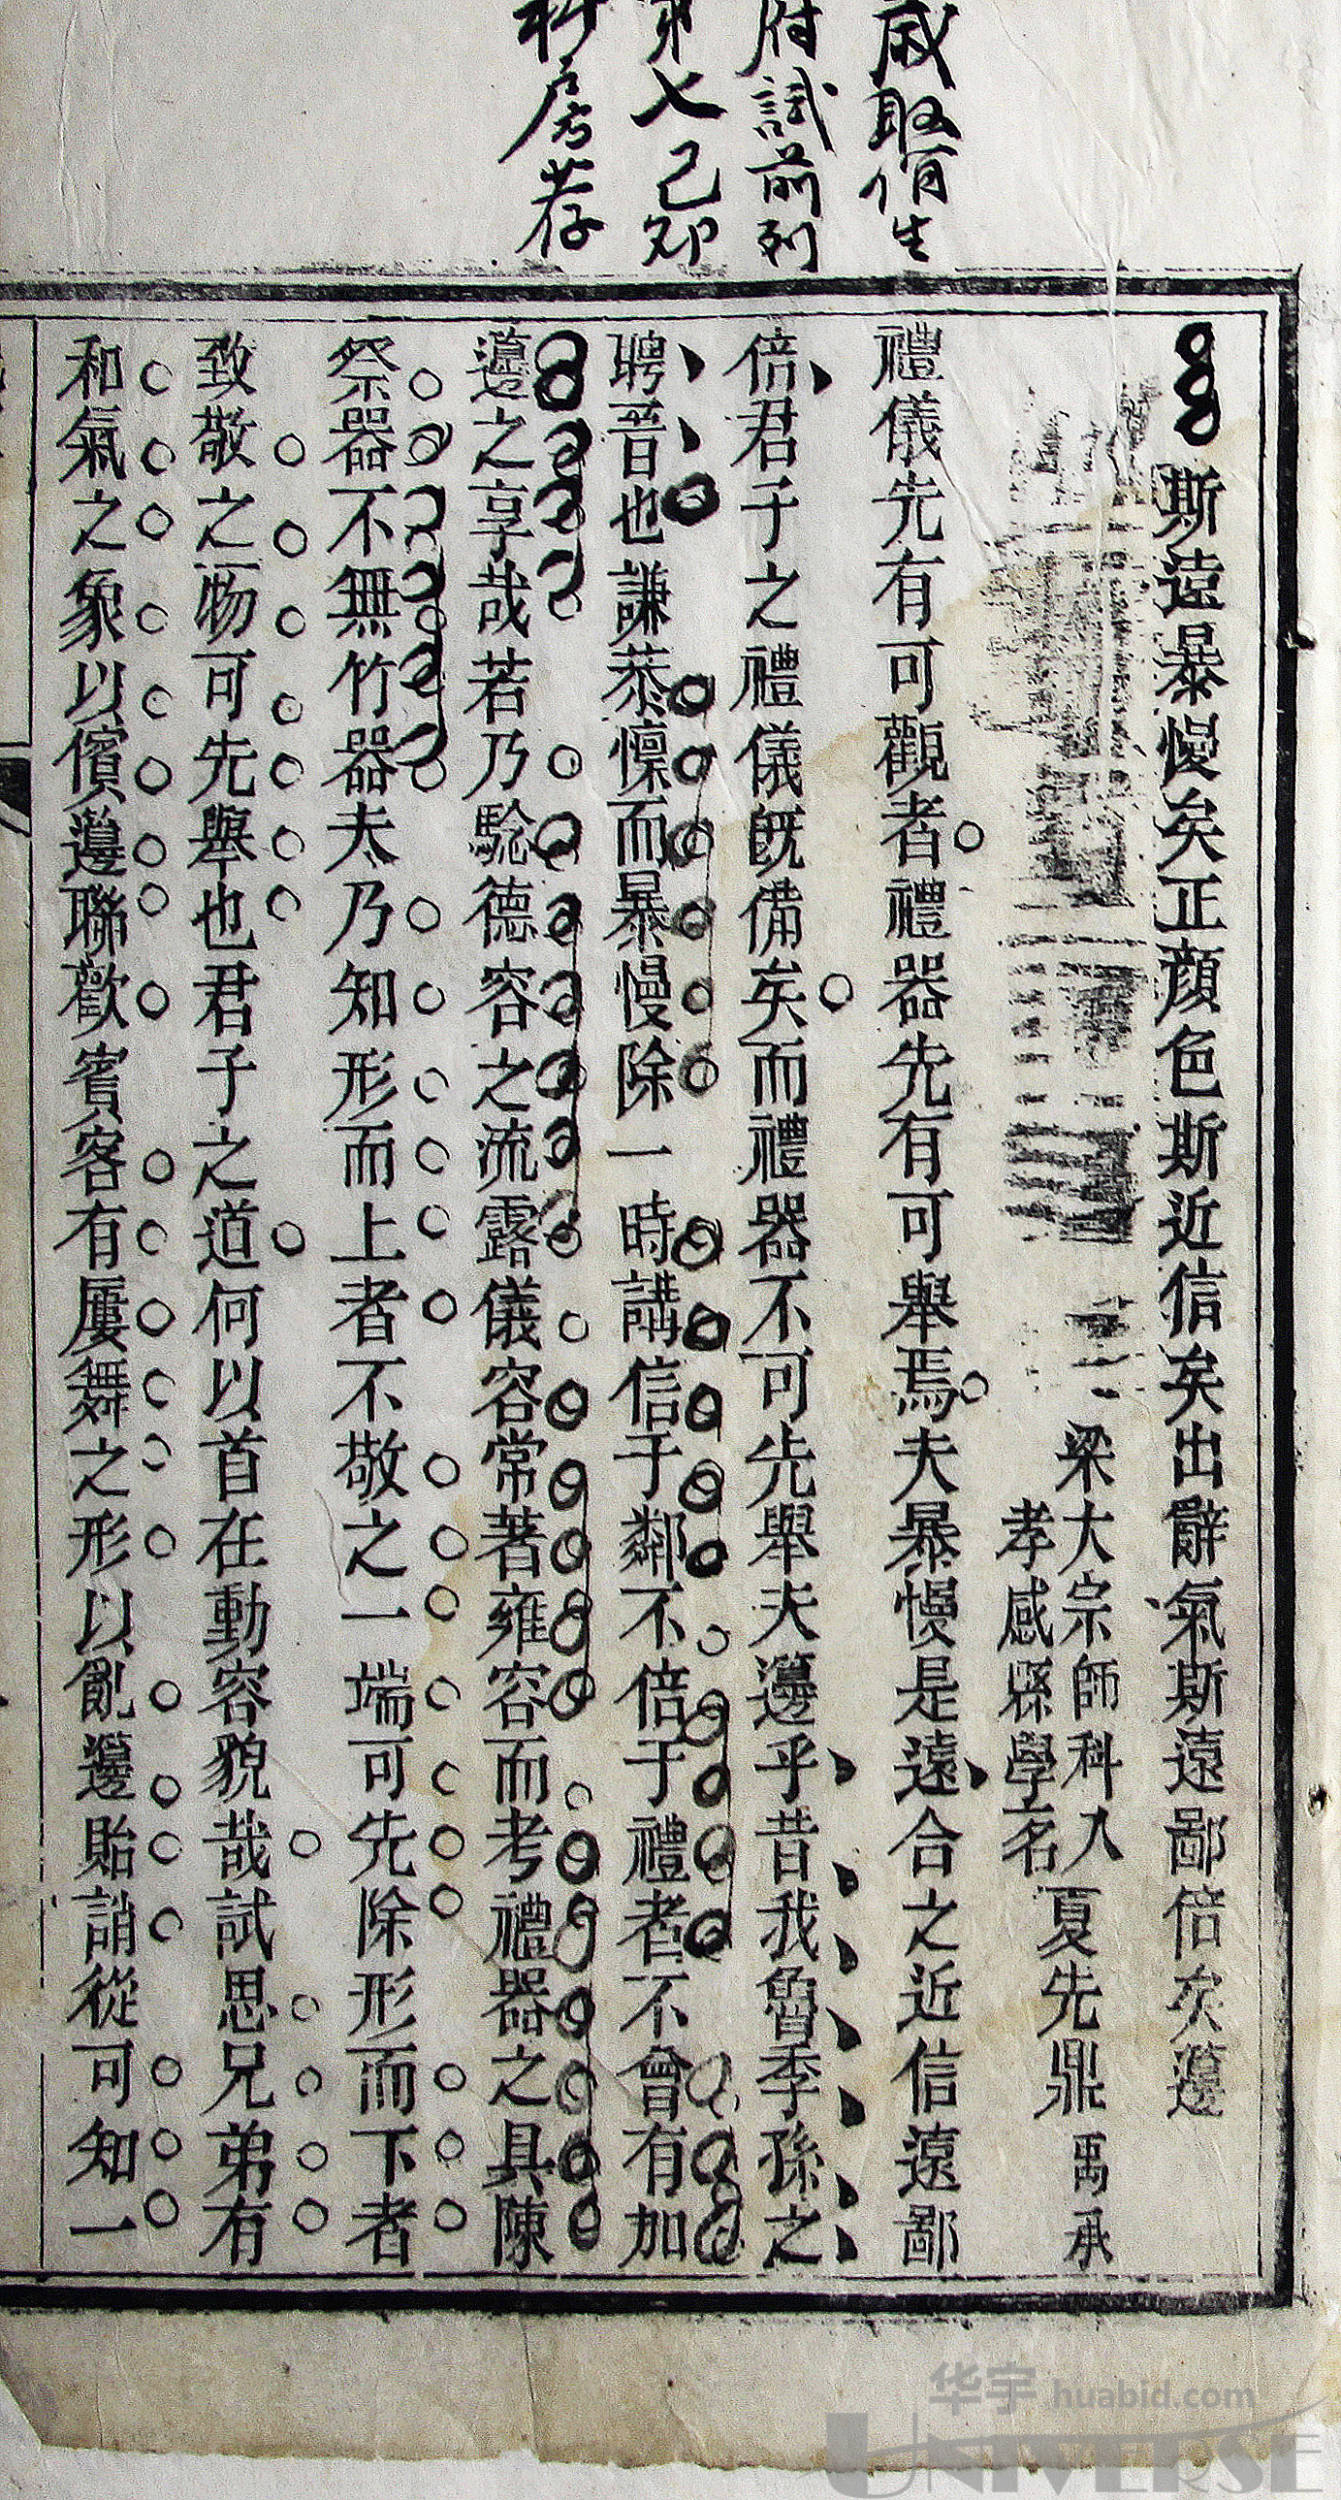 歲取佾生
府試前列
第七己卯
科房荐
斯遠暴慢矣正顔色斯近信矣出辭氣斯遠鄙倍矣籩
梁大宗師科入
孝感縣學名
夏先鼎
禹承
禮儀先有可觀者禮器先有可舉焉夫暴慢是遠合之近信遠鄙
倍君子之禮儀旣備矣而禮器不可先舉夫籩乎昔我魯季孫之
聘晉也謙恭懍而暴慢除一時講信于鄰不倍于禮者不曾有加
籩之享哉若乃驗德容之流露儀容常著雍容而考禮器之具陳
祭器不無竹器夫乃知形而上者不敬之一端可先除形而下者
致敬之一物可先舉也君子之道何以首在動容貌哉試思兄弟有
和氣之象以儐籩聯歡賓客有屢舞之形以亂籩貽誚從可知一
华宇 huabid.com
UNIVERSE